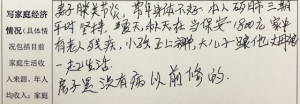 写家庭经济
情况(具体情
况包括目前
家庭生活收
入来源、年人
均收入;家庭
妻子腰关节炎,常年身体不好,本人矽肺三期
平时坚持, 夏天、秋天在当保安1800元 家中
有老人残疾,小孩正上初中,大儿子跟他丈母娘
一起生活
房子是没有病以前修的.